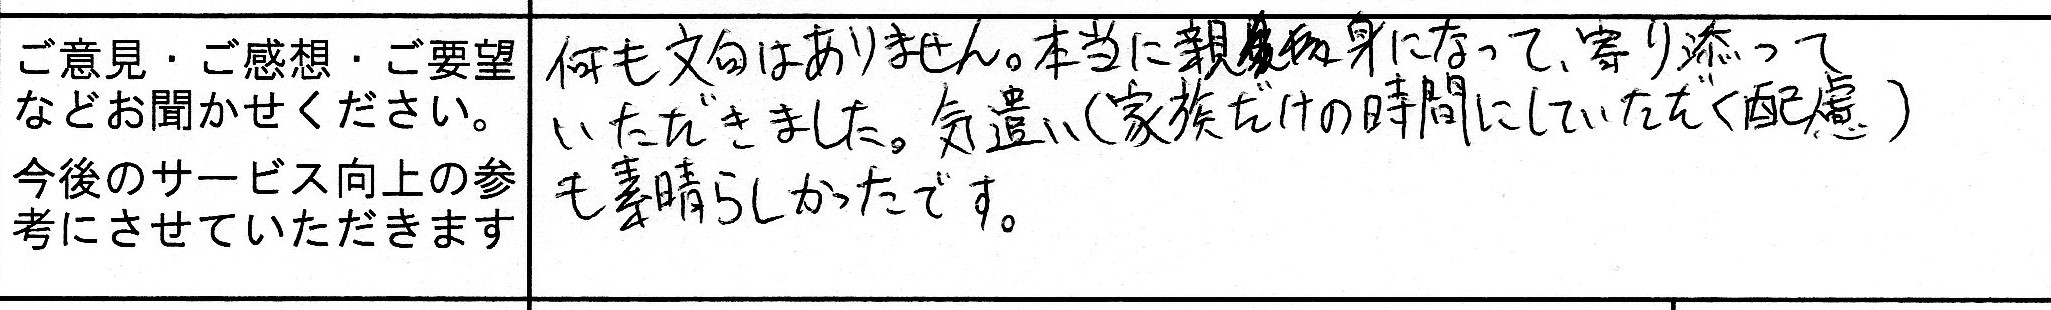 ご意見・ご感想・ご要望
などお聞かせください。
今後のサービス向上の参
考にさせていただきます
何も文句はありません。本当に親身になって、寄り添って
いただきました。気遣い(家族だけの時間にしていただく配慮)
も素晴らしかったです。